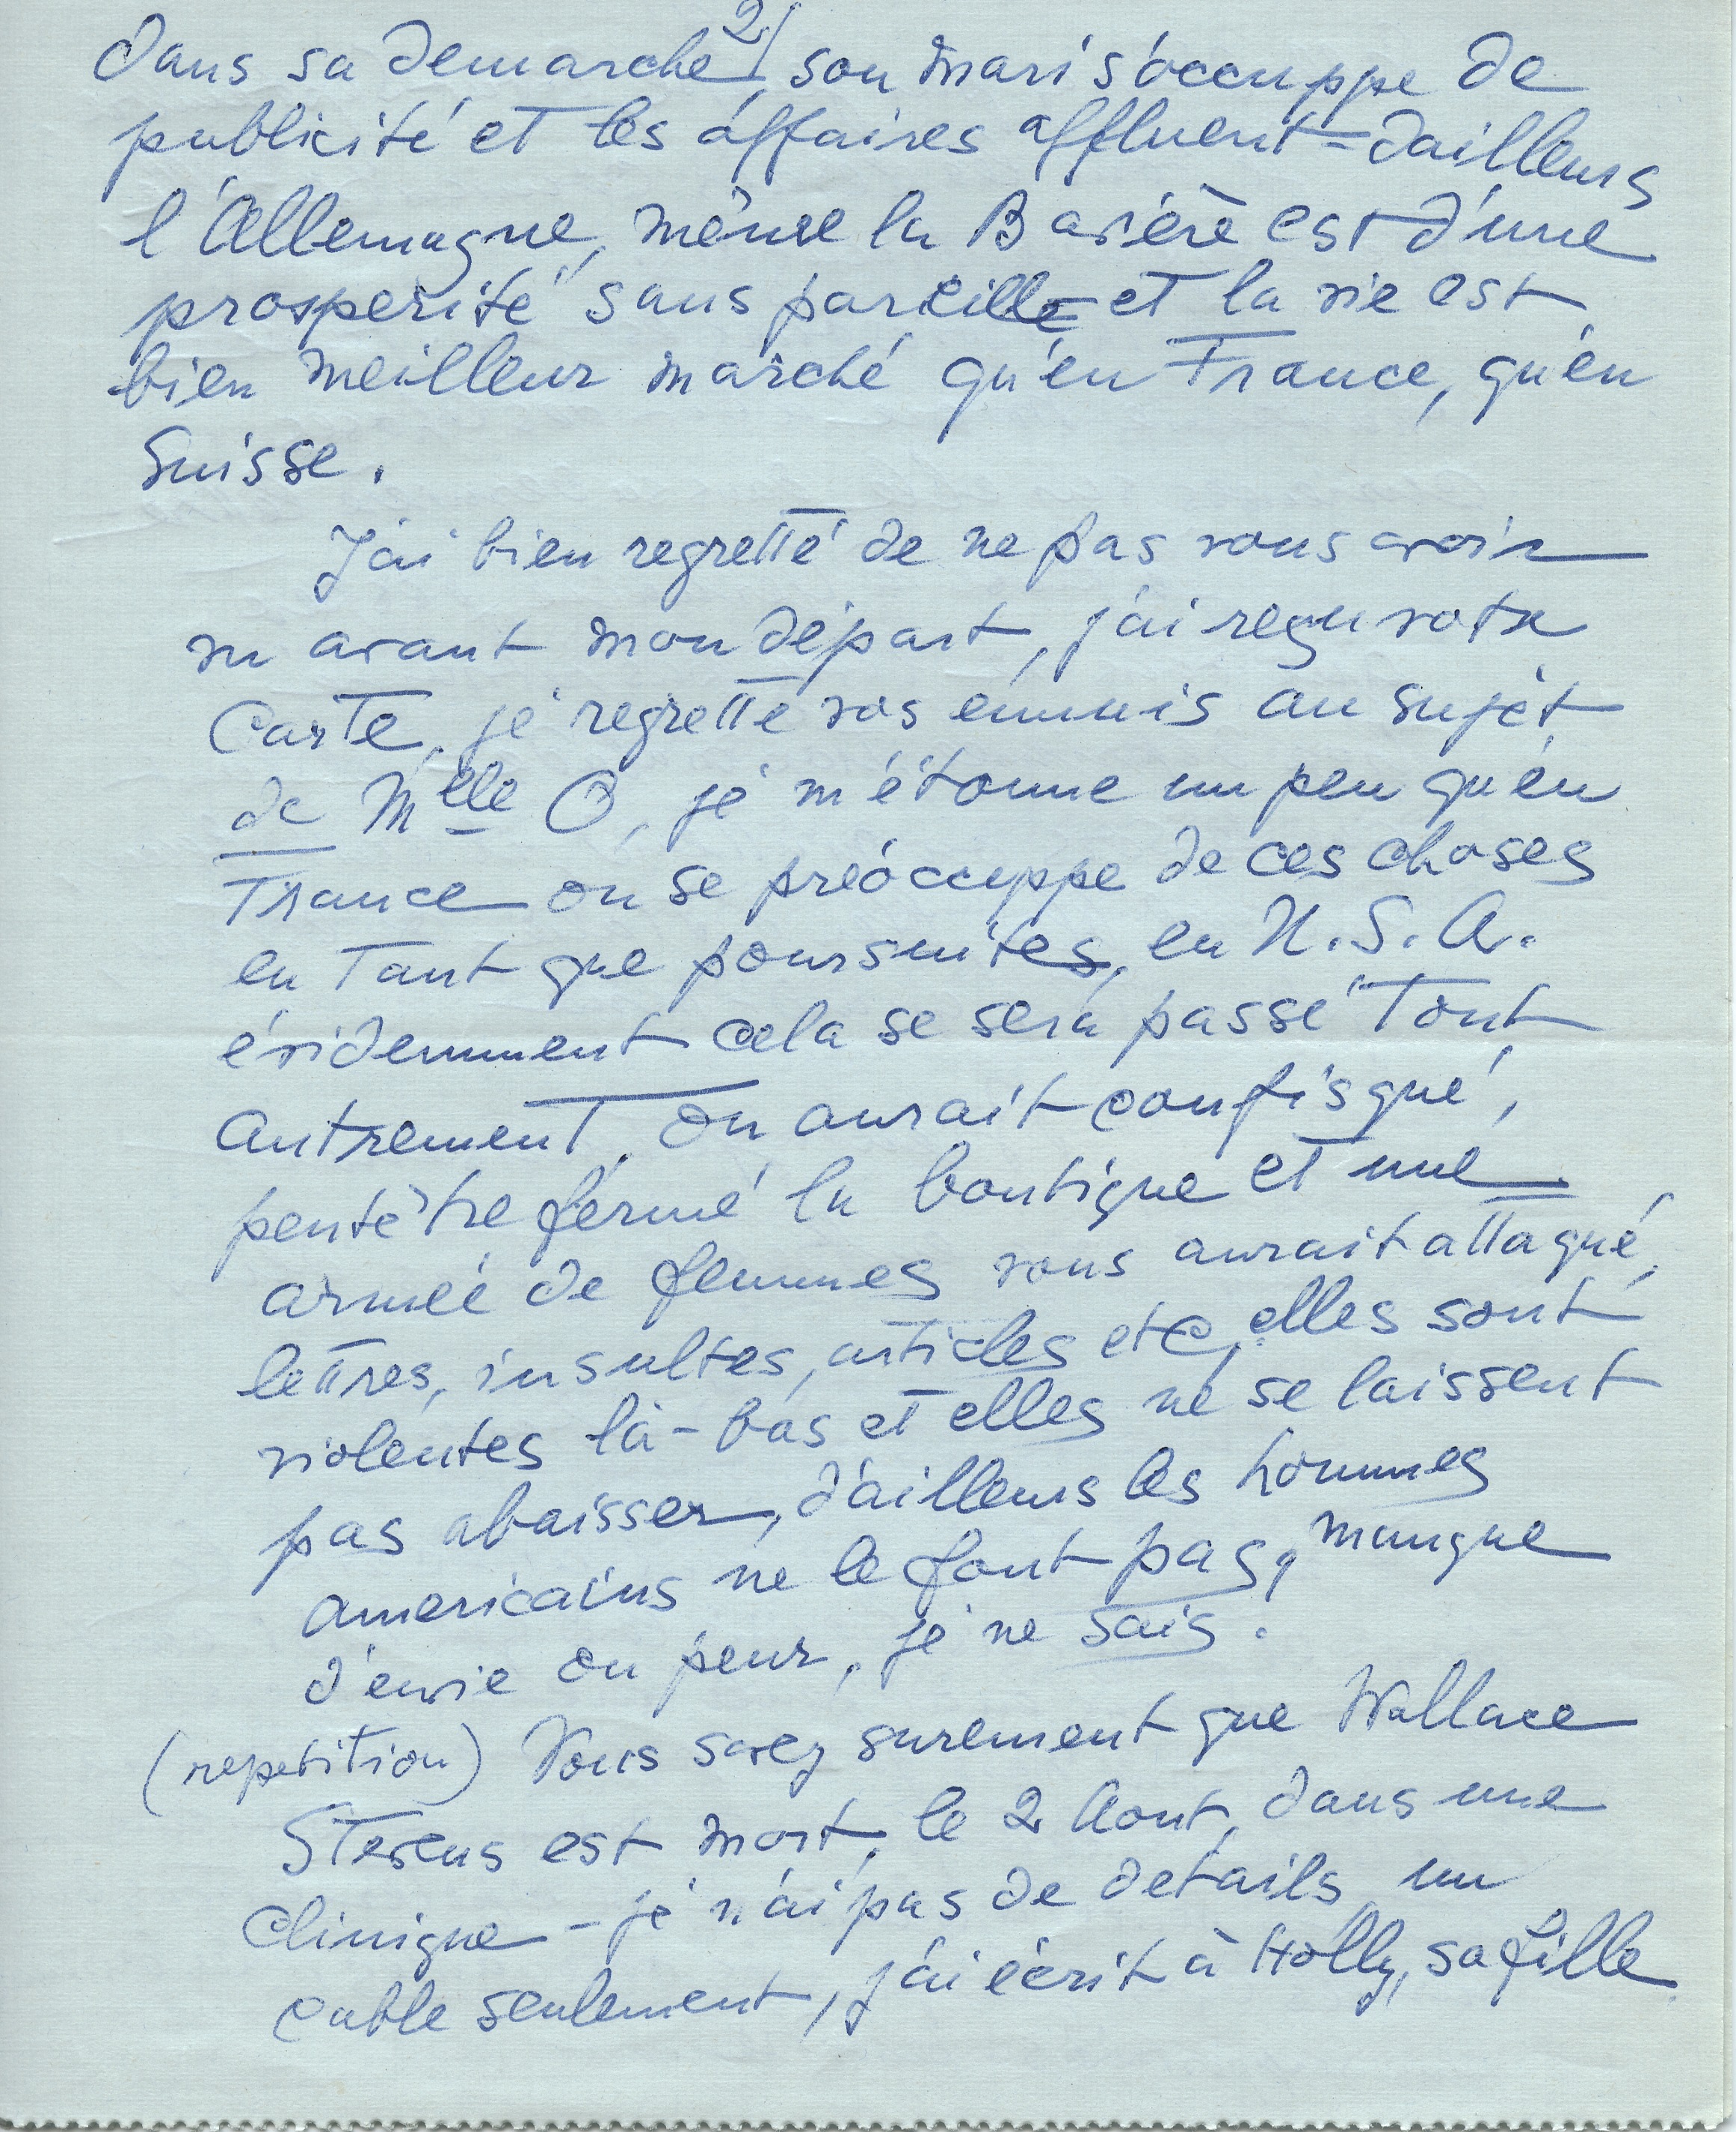 2/
dans sa demarche, son mari s'occuppe de
publicité et les affaires affluent – dailleurs
l'Allemagne, même la Bavière est d'une
prosperité sans pareille et la vie est
bien meilleur marché qu'en France, qu'en
Suisse.
J'ai bien regretté de ne pas vous avoir
vu avant mon départ, j'ai reçu votre
Carte, je regrette vos ennuis au sujet
de Melle O, je m'étonne un peu qu'en
France on se préoccuppe de ces choses
en tant que poursuites, en U.S.A.
évidemment cela se sera passé tout
autrement, on aurait confisqué,
peutêtre fermé la boutique et une
armée de femmes vous aurait attaqué,
lettres, insultes, articles etc, elles sont
violentes là-bas et elles ne se laissent
pas abaisser, d'ailleurs les hommes
americains ne le font pas, manque
d'envie ou peur, je ne sais.
(repetition) Vous savez surement que Wallace
Stevens est mort, le 2 Aout, dans une
Clinique – je n'ai pas de details, un
cable seulement, j'ai écrit à Holly, sa fille